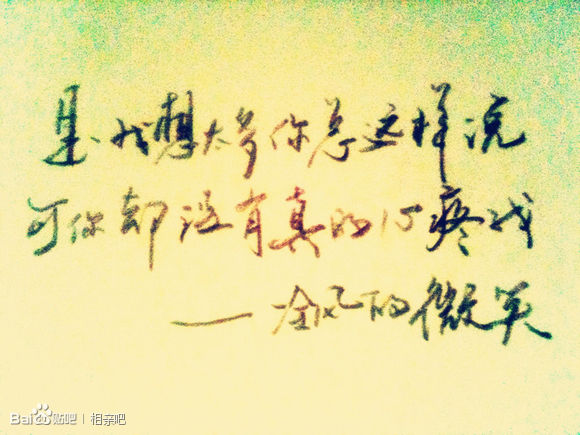 是我想太多你总这样说
可你却没有真的心疼我
——冷风的微笑
Bai du 贴吧 | 相亲吧